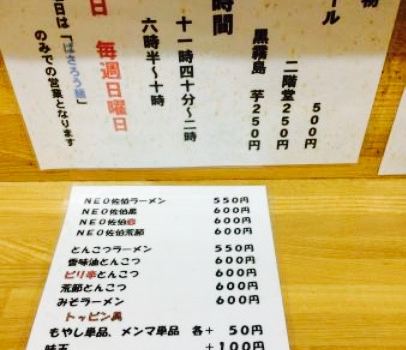 物
ール
５００円
二階堂２５０円
黒霧島 芋２５０円
時間
十一時四十分～二時
六時半～十時
日 毎週日曜日
日は「ばさろう麺」
のみでの営業となります
NEO佐伯ラーメン 550円
NEO佐伯黒 600円
NEO佐伯 600円
NEO佐伯荒節 600円
とんこつラーメン 550円
香味油とんこつ 600円
ピリ辛とんこつ 600円
荒節とんこつ 600円
みそラーメン 600円
トッピング
もやし単品、メンマ単品 各＋ 50円
味玉 ＋100円